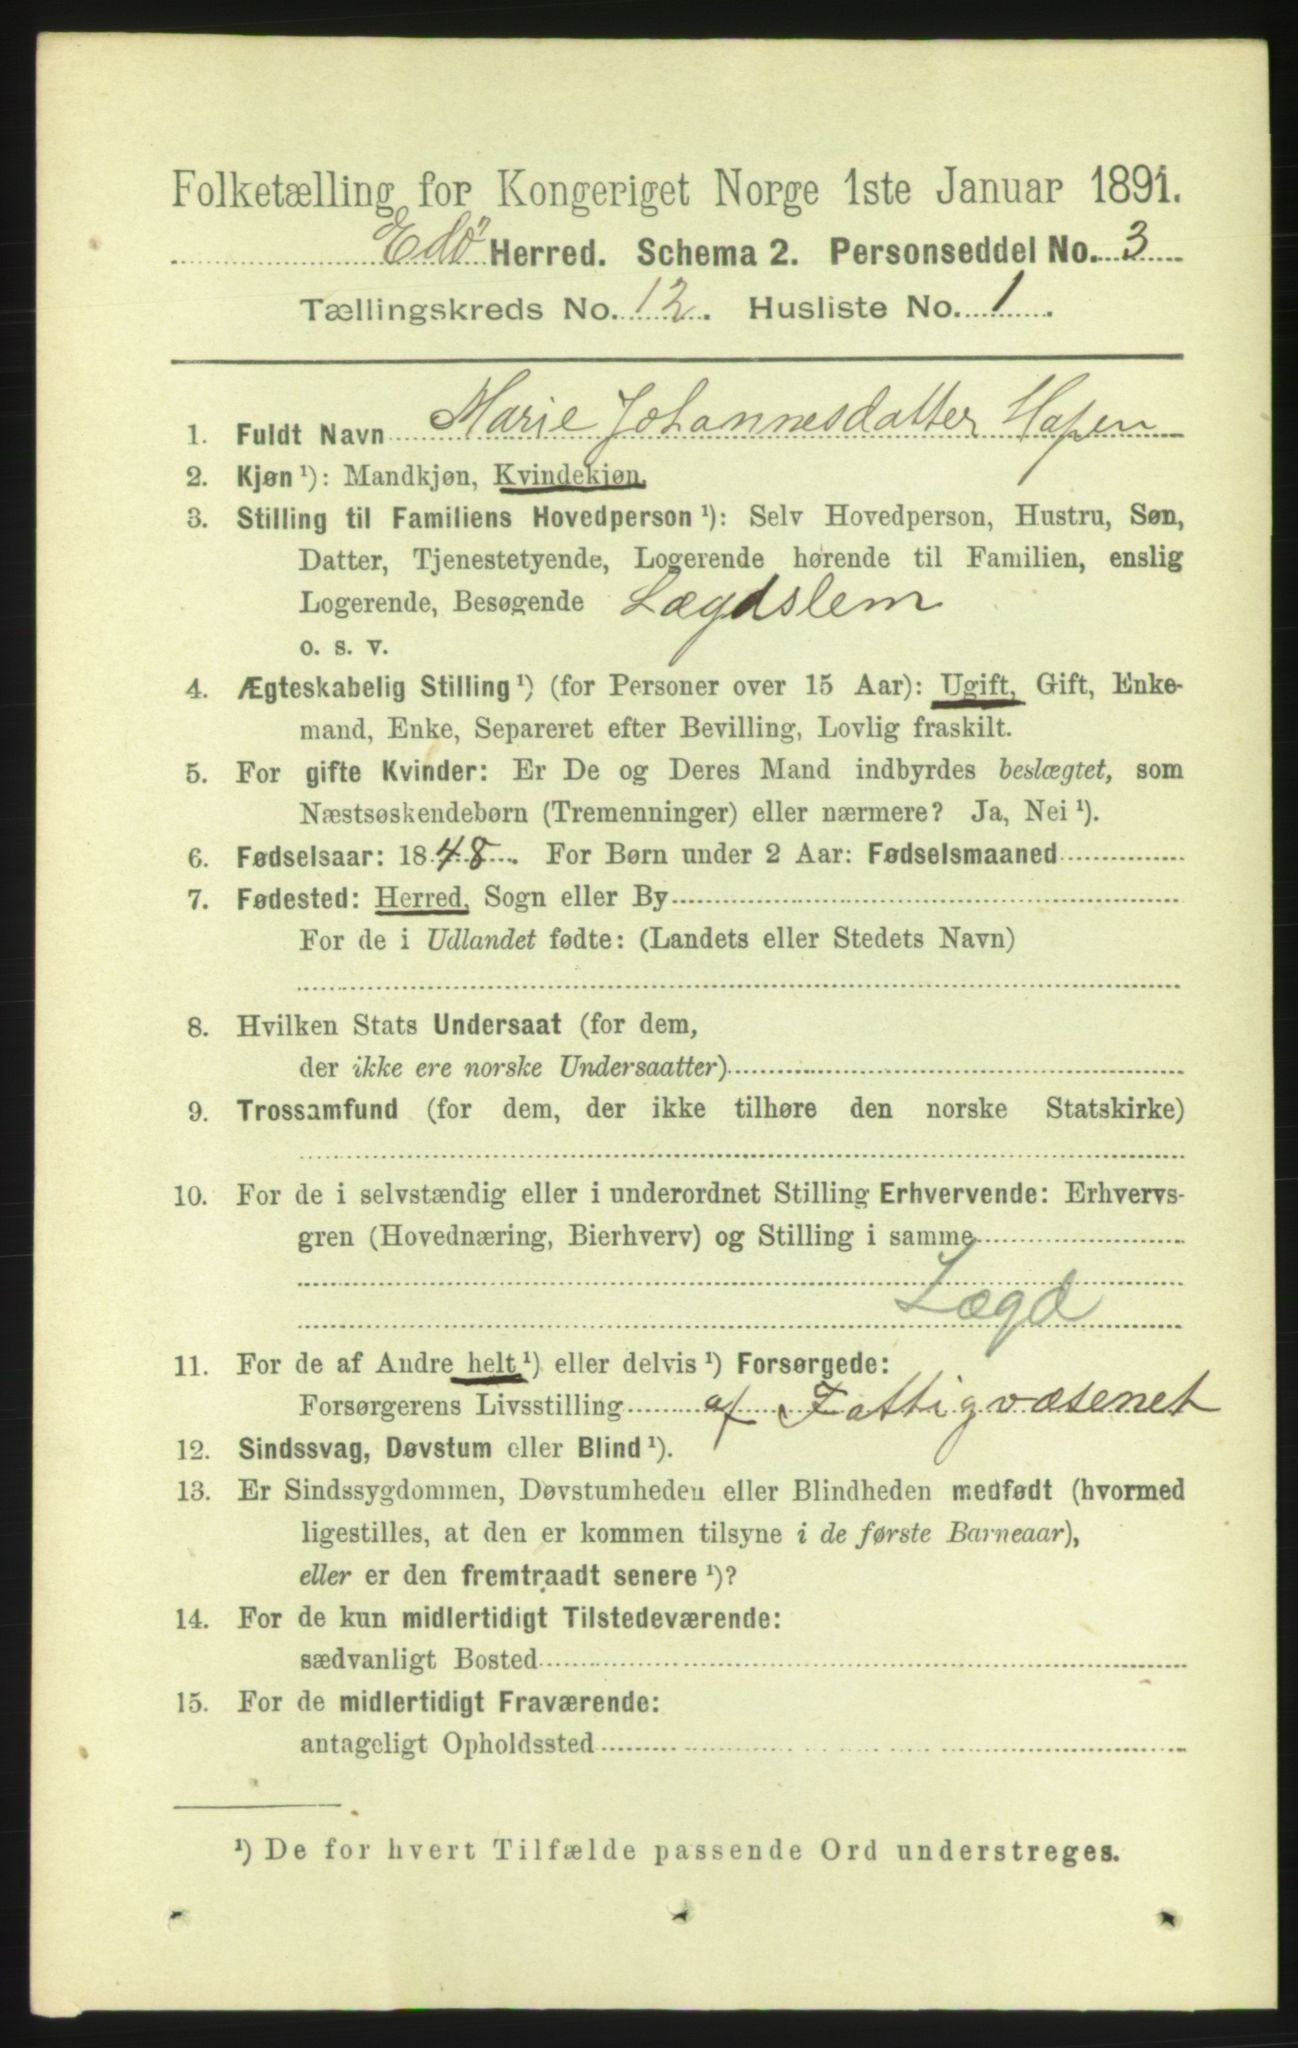 Folketælling for Kongeriget Norge 1ste Januar 1891.
Edö Herred. Schema 2. Personseddel No. 3
Tællingskreds No. 12. Husliste No. 1.
1. Fuldt Navn Marie Johannesdatter Hafen
2. Kjøn ¹): Mandkjøn, Kvindekjøn.
3. Stilling til Familiens Hovedperson ¹): Selv Hovedperson, Hustru, Søn,
Datter, Tjenestetyende, Logerende hørende til Familien, enslig
Logerende, Besøgende Lægdslem
o. s. v.
4. Ægteskabelig Stilling ¹) (for Personer over 15 Aar): Ugift, Gift, Enke-
mand, Enke, Separeret efter Bevilling, Lovlig fraskilt.
5. For gifte Kvinder: Er De og Deres Mand indbyrdes beslægtet, som
Næstsøskendebørn (Tremenninger) eller nærmere? Ja, Nei ¹).
6. Fødselsaar: 1848. For Børn under 2 Aar: Fødselsmaaned
7. Fødested: Herred, Sogn eller By
For de i Udlandet fødte: (Landets eller Stedets Navn)
8. Hvilken Stats Undersaat (for dem,
der ikke ere norske Undersaatter)
9. Trossamfund (for dem, der ikke tilhøre den norske Statskirke)
10. For de i selvstændig eller i underordnet Stilling Erhvervende: Erhvervs-
gren (Hovednæring, Bierhverv) og Stilling i samme
Lægd
11. For de af Andre helt ¹) eller delvis ¹) Forsørgede:
Forsørgerens Livsstilling af Fattigvæsenet
12. Sindssvag, Døvstum eller Blind ¹).
13. Er Sindssygdommen, Døvstumheden eller Blindheden medfødt (hvormed
ligestilles, at den er kommen tilsyne i de første Barneaar),
eller er den fremtraadt senere ¹)?
14. For de kun midlertidigt Tilstedeværende:
sædvanligt Bosted
15. For de midlertidigt Fraværende:
antageligt Opholdssted
¹) De for hvert Tilfælde passende Ord understreges.